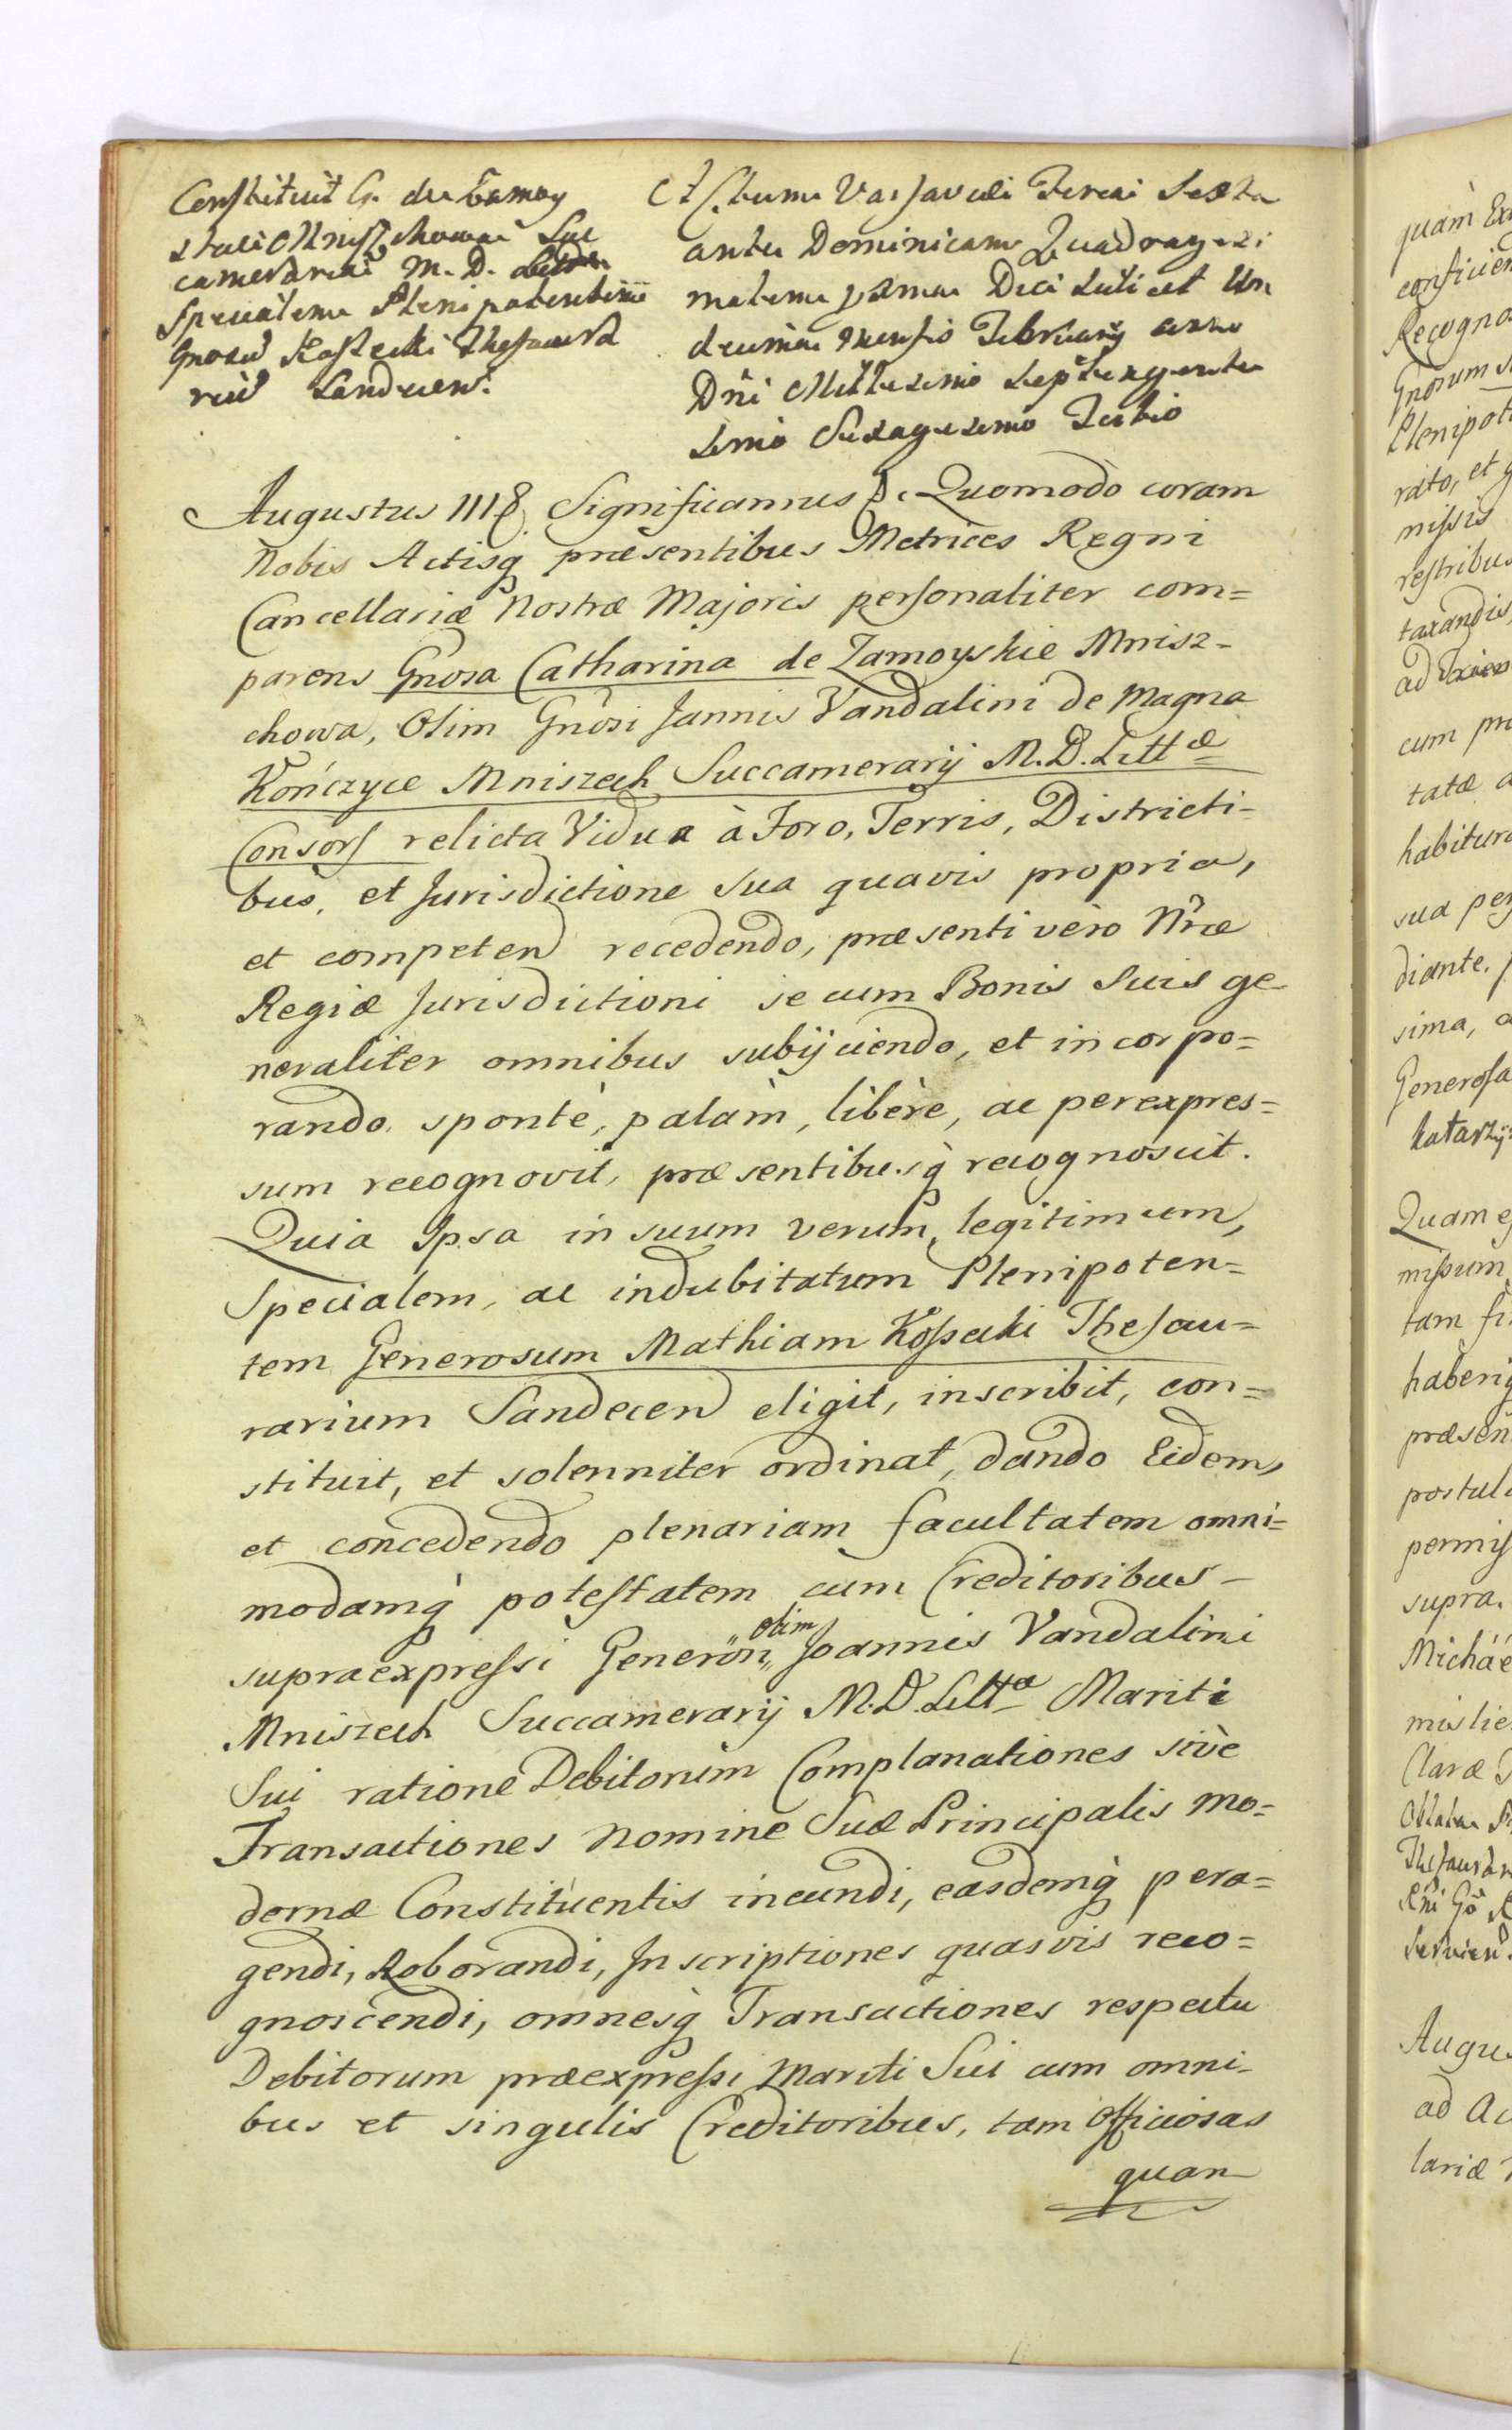 Constituit G. de Zamoy
skie Mniszchowa Suc
cameraria M. D.
Specialem Plenipotentem
Gnosu Kossecki Thesaura
riu Sandecen.
Actum Varsaviæ Feria Sexta
ante Dominicam Quadragesi
malem primam Die scilicet Un
decima Mensis Februarij anno
Dni Millesimo Septingente
simo Sexagesimo Tertio
Augustus III Significamus Quomodò coram
Nobis Actisq præsentibus Metrices Regni
Cancellariæ Nostræ Majoris personaliter com=
parens Gnosa Catharina de Zamoyskie Mnisz-
chowa, Olim Gnosi Jannis Vandalini de Magna
Kończyce Mniszech Succamerarij M. D. Littæ
Consors relicta Vidua à Foro, Terris, Districti=
bus, et Jurisdictione sua quavis propria,
et competen recedendo, præsenti verò Nræ
Regiæ Jurisdictioni se cum Bonis Suis ge
neraliter omnibus subijciendo, et incorpo=
rando, spontè, palàm, liberè, ac perexpres=
sum recognovit, præsentibusq recognoscit.
Quia Ipsa in suum verum, legitimum,
Specialem, ac indubitatum Plenipoten=
tem Generosum Mathiam Kossecki Thesau=
rarium Sandecen eligit, inscribit, con=
stituit, et solenniter ordinat, dando Eidem,
et concedendo plenariam facultatem omni=
modamq potestatem cum Creditoribus
supraexpressi Generon olim Joannis Vandalini
Mniszech Succamerarij M. D. Littæ Mariti
Sui ratione Debitorum Complanationes sivè
Transactiones nomine Suæ Principalis mo=
dernæ Constituentis ineundi, easdemq pera=
gendi, Roborandi, Inscriptiones quasvis reco=
gnoscendi, omnesq Transactiones respectu
Debitorum præexpressi Mariti Sui cum omni-
bus et singulis Creditoribus, tam officiosas
quam
quàm
Recogno
Plenipot
rato, et
restribus
taxandis
ad
cum
tatæ
habitur
sua
diante.
sima,
Generosa
Quam
missum
tam
præsen
permis
supra.
Claræ
ad
lariæ